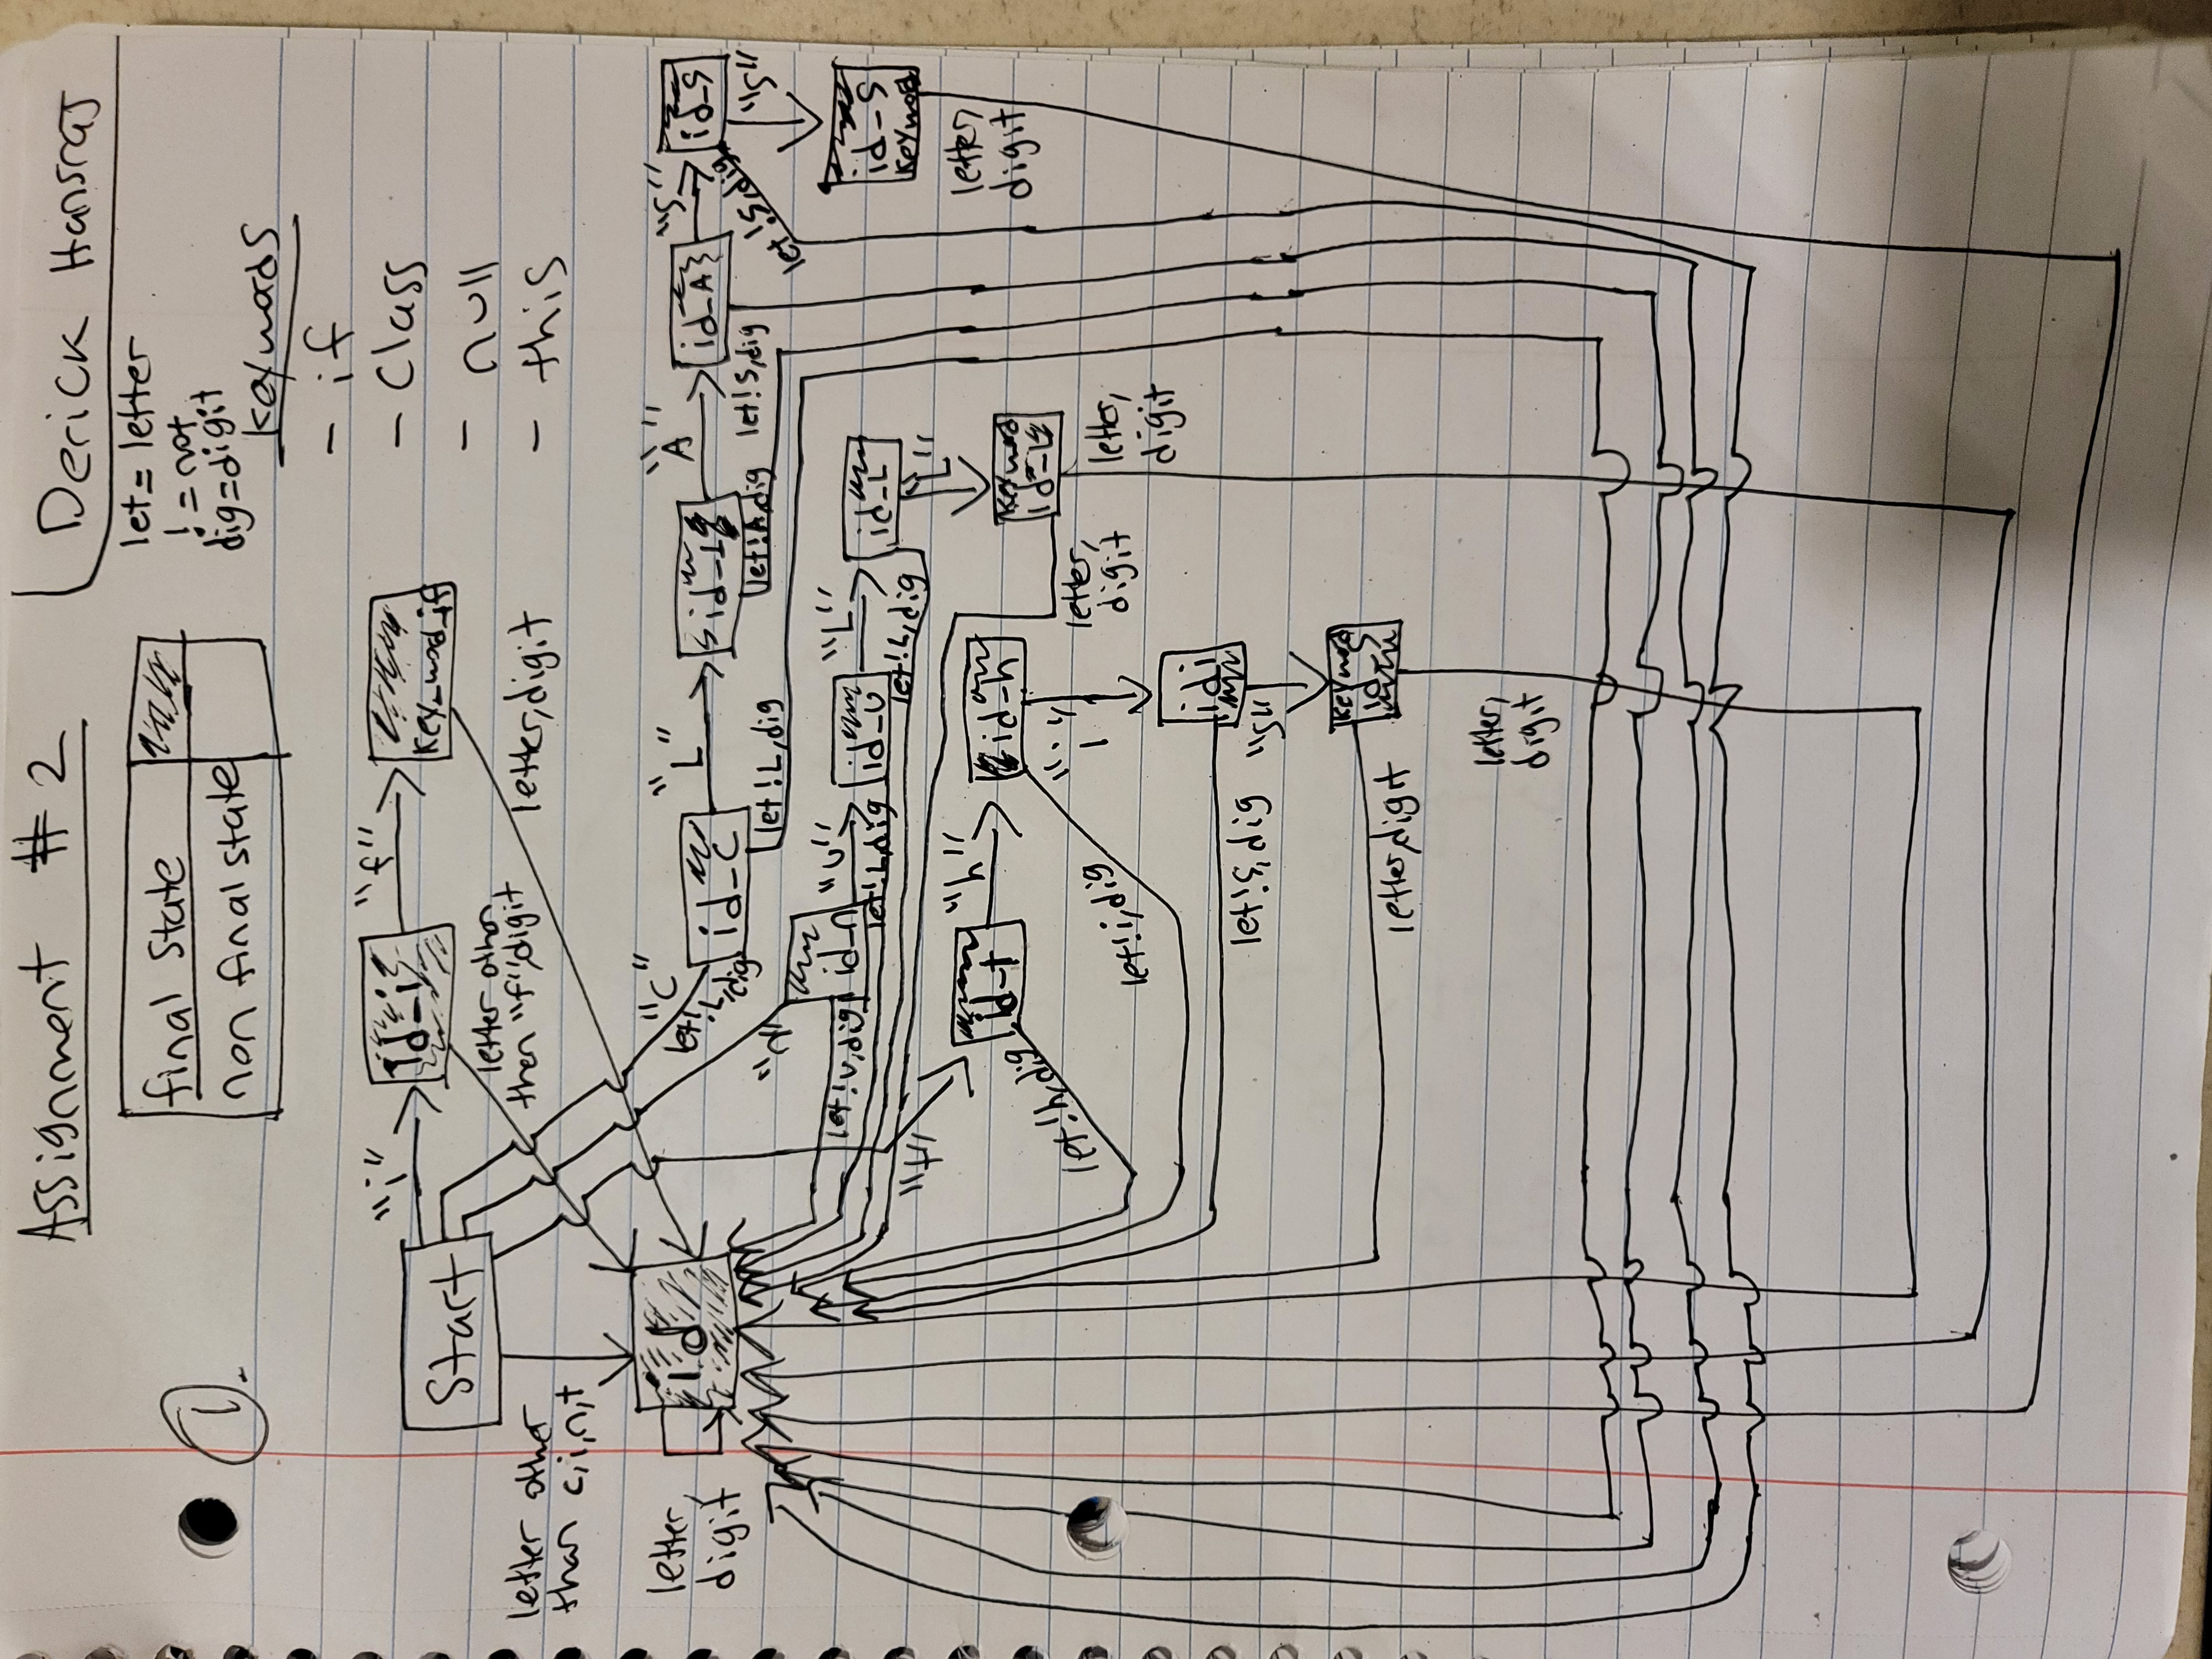 Assignment # 2
Derick Hansraj
let = letter
! = not
dig = digit
final state
non final state
1.
keywords
- if
- Class
- null
- this
Start
"i"
id_i
"f"
key_word_if
letter other
then "f", digit
letter, digit
letter other
than c, i, n, t
letter,
digit
id
"C"
let!L,dig
id_C
"L"
let!L,dig
"A"
let!A,dig
id_A
let!S,dig
"S"
id_S
let!S,dig
"S"
id_S
keyword
letter,
digit
"n"
let!U,dig
id_n
"U"
let!L,dig
id_U
"L"
let!L,dig
id_L
"L"
keyword
id_L
letter,
digit
letter,
digit
"t"
id_t
let!h,dig
"h"
id_h
let!i,dig
"i"
idi
let!S,dig
"S"
keyword
id_S
letter,digit
letter,
digit